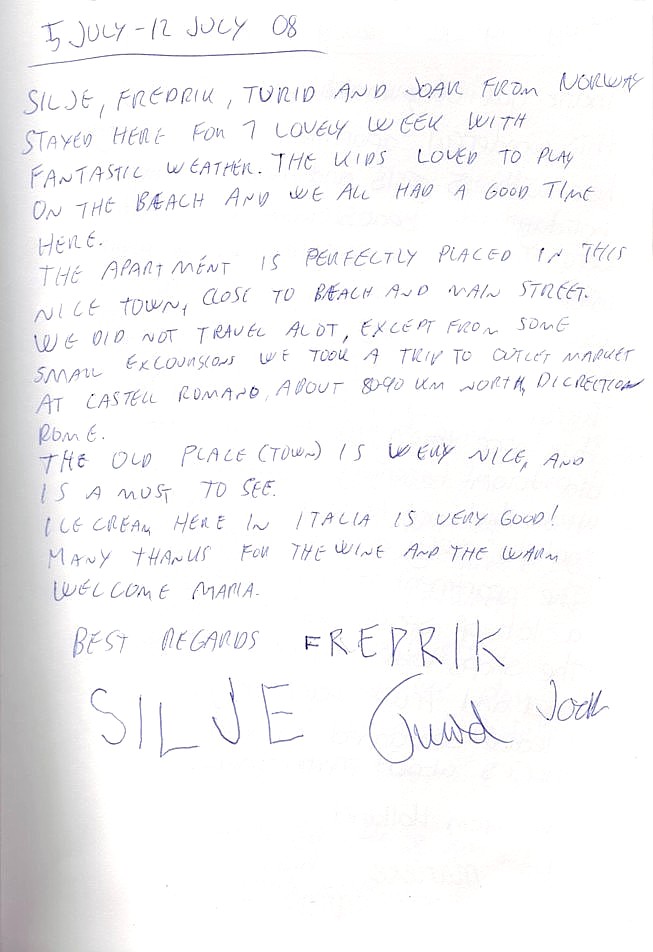 5 JULY - 12 JULY 08
SILJE, FREDRIK, TURID AND JOAR FROM NORWAY
STAYED HERE FOR 1 LOVELY WEEK WITH
FANTASTIC WEATHER. THE KIDS LOVED TO PLAY
ON THE BEACH AND WE ALL HAD A GOOD TIME
HERE.
THE APARTMENT IS PERFECTLY PLACED IN THIS
NICE TOWN, CLOSE TO BEACH AND MAIN STREET.
WE DID NOT TRAVEL ALOT, EXCEPT FROM SOME
SMALL EXCOURSIONS WE TOOK A TRIP TO OUTLET MARKET
AT CASTELL ROMANO, ABOUT 80-90 KM NORTH, DICRECTION
ROME.
THE OLD PLACE (TOWN) IS WERY NICE, AND
IS A MUST TO SEE.
ICE CREAM HERE IN ITALIA IS VERY GOOD!
MANY THANKS FOR THE WINE AND THE WARM
WELCOME MARIA.
BEST REGARDS FREDRIK
SILJE Turid Joar